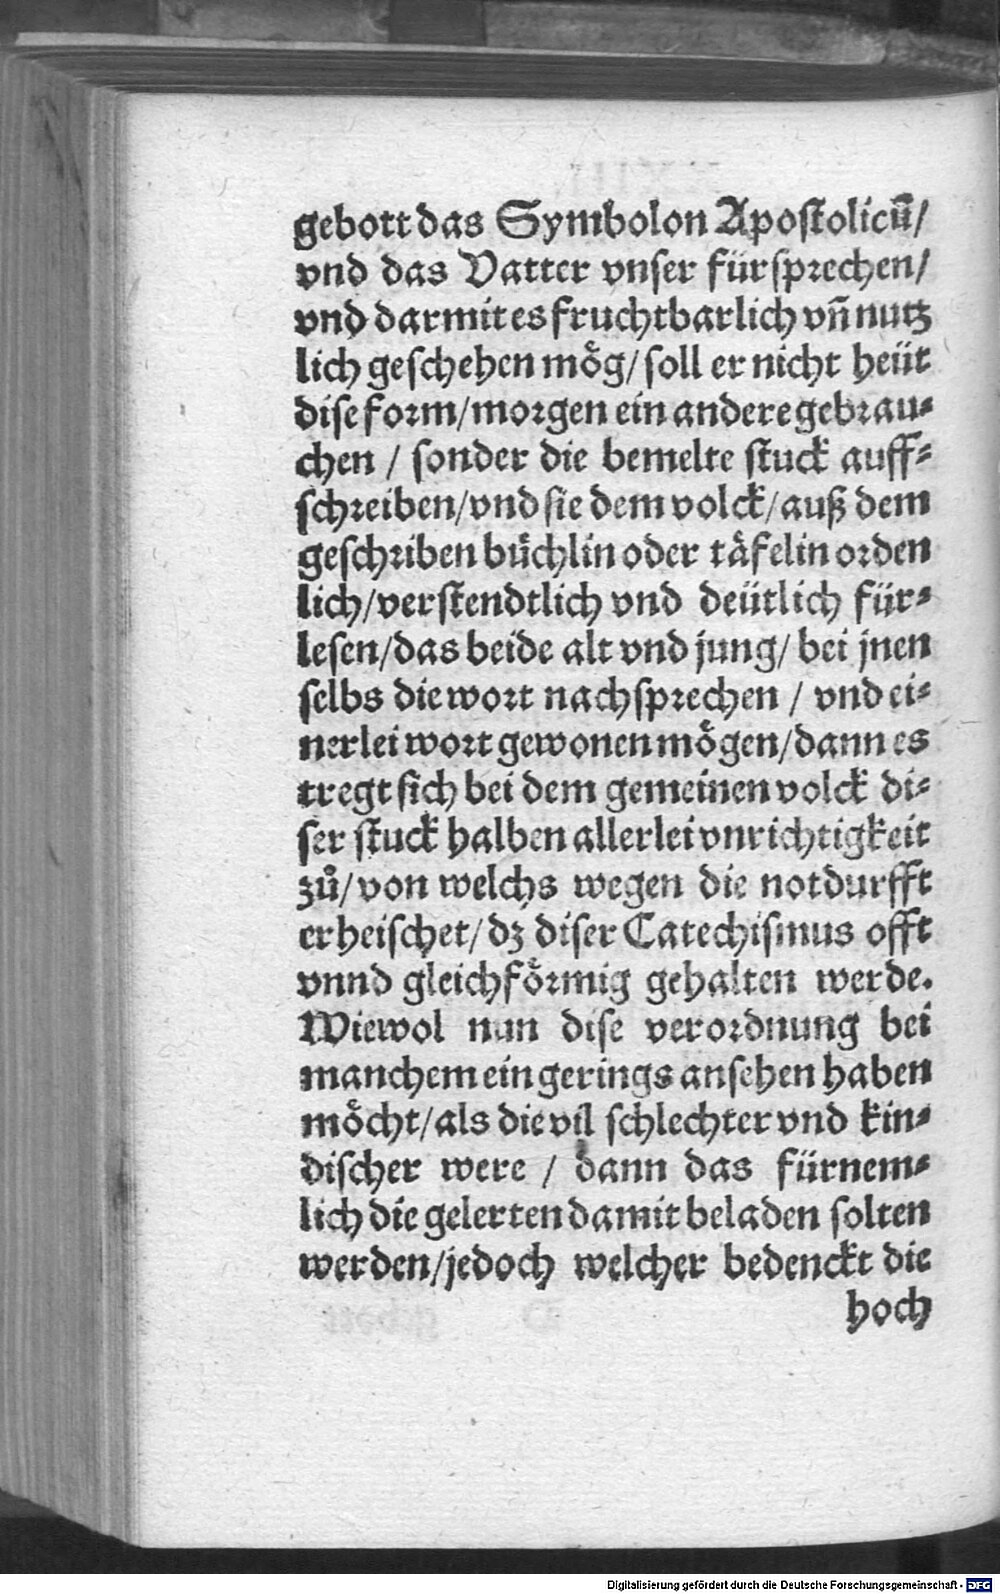 gebott das Symbolon Apostolicū/
vnd das Vatter vnser fürsprechen/
vnd darmit es fruchtbarlich vn̄ nutz
lich geschehen mo̊g/ soll er nicht heüt
dise form/morgen ein andere gebrau⸗
chen / sonder die bemelte stuck auff⸗
schreiben/vnd sie dem volck/auß dem
geschriben büchlin oder taͤfelin orden
lich/verstendtlich vnd deütlich für⸗
lesen/das beide alt vnd jung/ bei jnen
selbs die wort nachsprechen / vnd ei⸗
nerlei wort gewonen moͤgen/dann es
tregt sich bei dem gemeinen volck di⸗
ser stuck halben allerlei vnrichtigkeit
zů/von welchs wegen die notdurfft
erheischet/dz diser Catechismus offt
vnnd gleichfoͤrmig gehalten werde.
Wiewol nun dise verordnung bei
manchem ein gerings ansehen haben
moͤcht/als die vil schlechter vnd kin⸗
discher were / dann das fürnem⸗
lich die gelerten damit beladen solten
werden/jedoch welcher bedenckt die
hoch
Digitalisierung gefördert durch die Deutsche Forschungsgemeinschaft - DFG